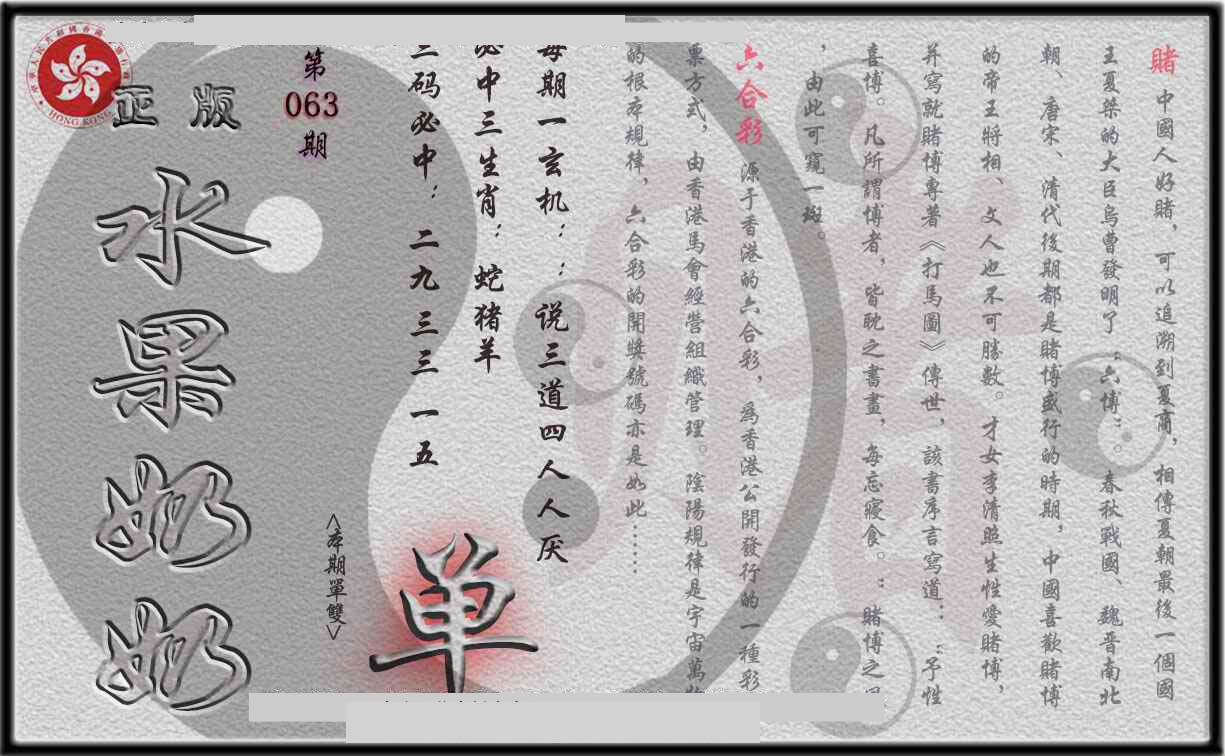 賭 中國人好賭，可以追溯到夏商，相傳夏朝最後一個國
王夏桀的大臣烏曹發明了“六博”。春秋戰國、魏晋南北
朝、唐宋、清代後期都是賭博盛行的時期，中國喜歡賭博
的帝王將相、文人也不可勝數。才女李清照生性愛賭博，
并寫就賭博專著《打馬圖》傳世，該書序言寫道：“予性
喜博。凡所謂博者，皆耽之晝，每忘寢食。”賭博之
，由此可窺一斑。
六合彩 源于香港的六合彩，爲香港公開發行的一種彩
票方式，由香港馬會經營組織管理。陰陽規律是宇宙萬物
的根本規律，六合彩的開獎號碼亦是如此……
每期一玄机：：说三道四人人厌
必中三生肖：蛇猪羊
三码必中：二九 三三 一五
单
<本期單雙>
第
063
期
正版
水果奶奶
HONG KONG